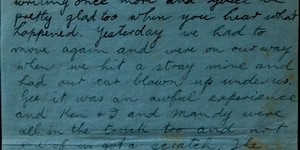 writing once more and you'll be
pretty glad too when you hear what
happened. Yesterday we had to
move again and were on our way
when we hit a stray mine and
had our car blown up under us.
Gee it was an awful experience
and Ken & I and Mandy were
all in the truck too and not
one of us got a scratch. The